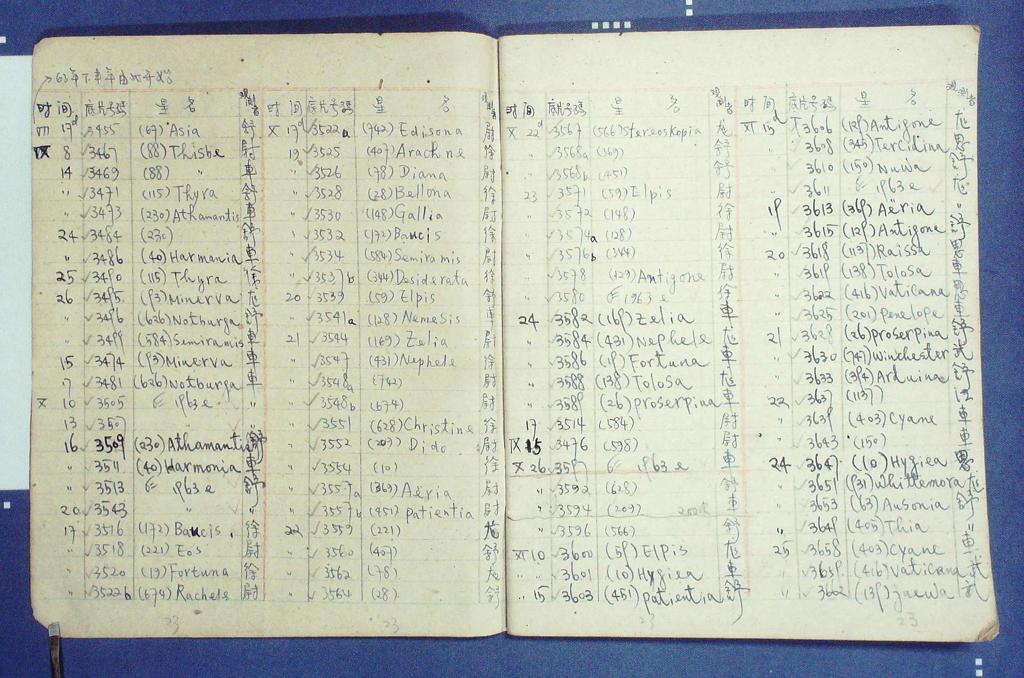 63年下半年由此开始
时间 底片号码 星名 观测者
VII 17d 3455 (67) Asia 舒
IX 8 3467 (88) Thisbe 尉
14 3469 (88) " 車
" 3471 (115) Thyra 舒
" 3473 (230) Athamantis 車
24 3484 (230) 舒
" 3486 (40) Harmonia 車
25 3490 (115) Thyra 徐
26 3495 (93) Minerva 尨
" 3496 (626) Notburga
" 3499 (584) Semiramis 車
15 3474 (93) Minerva 車
17 3481 (626) Notburga 車
X 10 3505 1963e "
13 3507 "
16 3509 (230) Athamantis 舒
" 3511 (40) Harmonia 車
" 3513 1963e 舒
20 3543 "
17 3516 (172) Baucis 徐
" 3518 (221) Eos 尉
" 3520 (19) Fortuna 徐
" 3522b (674) Rachele 尉
23
时间 底片号码 星名 观测者
X 17d 3522a (742) Edisona 尉
19 3525 (407) Arachne 徐
" 3526 (78) Diana 尉
" 3528 (28) Bellona 徐
" 3530 (148) Gallia 尉
" 3532 (172) Baucis 徐
" 3534 (584) Semiramis 尉
" 3537b (344) Desiderata 徐
20 3539 (59) Elpis 舒
" 3541a (128) Nemesis 車
21 3544 (169) Zelia 尉
" 3547 (431) Nephele 徐
" 3548a (742) 尉
" 3548b (674) 尉
" 3551 (628) Christine 徐
" 3552 (209) Dido 尉
" 3554 (10) 徐
" 3557a (369) Aëria 尉
" 3557b (451) patientia 尉
22 3559 (221) 尨
" 3560 (407) 舒
" 3562 (78) 尨
" 3564 (28) 舒
23
时间 底片号码 星名 观测者
X 22d 3567 (566) Stereoskopia 尨
" 3568a (369) 舒
" 3568b (451) 舒
23 3571 (59) Elpis 尉
" 3572 (148) 徐
" 3574a (128) 尉
" 3576b (344) 徐
" 3578 (129) Antigone 尉
" 3580 1963e 徐
24 3582 (169) Zelia 車
" 3584 (431) Nephele 尨
" 3586 (19) Fortuna 車
" 3588 (138) Tolosa 尨
" 3589 (26) proserpina 車
17 3514 (584) 尉
IX 15 3476 (598) 尉
X 26 3597 1963e 車
" 3592 (628) 舒
" 3594 (209) 車
" 3596 (566) 舒
XI 10 3600 (59) Elpis 尨
" 3601 (10) Hygiea 車
" 15 3603 (451) patientia 舒
23
时间 底片号码 星名 观测者
XI 15d 3606 (129) Antigone 尨
" 3608 (345) Tercidina
" 3610 (150) Nuwa 舒
" 3611 1963e 尨
19 3613 (369) Aëria "
" 3615 (129) Antigone 舒
20 3618 (1137) Raissa
" 3619 (138) Tolosa 車
" 3622 (416) Vaticana
" 3625 (201) penelope 車
21 3628 (26) proserpina 舒
" 3630 (747) Winchester
" 3633 (394) Arduina 舒
22 3637 (1137)
" 3639 (403) Cyane 車
" 3643 (150) 車
24 3647 (10) Hygiea
" 3651 (931) Whittemora 尨
" 3653 (63) Ausonia 舒
" 3649 (405) Thia "
25 3658 (403) Cyane 車
" 3659 (416) Vaticana
" 3662 (139) Juewa
23